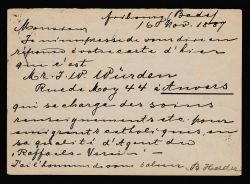 Freibourg (Bade)
16 Nov. 1887
Monsieur
Je m'empresse de vous dire en
réponse à votre carte d'hier
que c'est
Mr. J. W. Würden
Rue de Moy 44 à Anvers
qui se charge des soins
renseignements etc. pour
émigrants catholiques, en
sa qualité d'Agent du
„Raffaels-Verein"
J'ai l'honneur de vous saluer